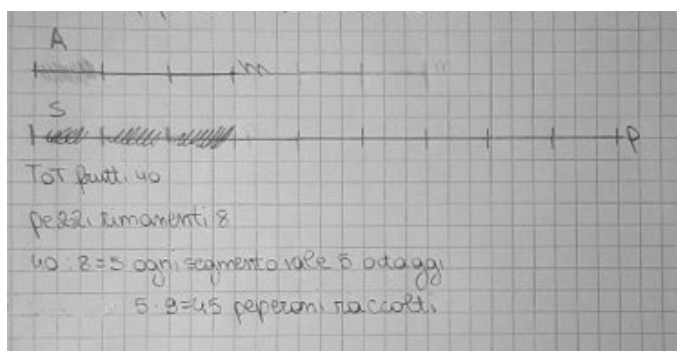 A
m
S
P
TOT frutti 40
pezzi rimanenti 8
40 : 8 = 5 ogni segmento vale 5 ortaggi
5 · 9 = 45 peperoni raccolti